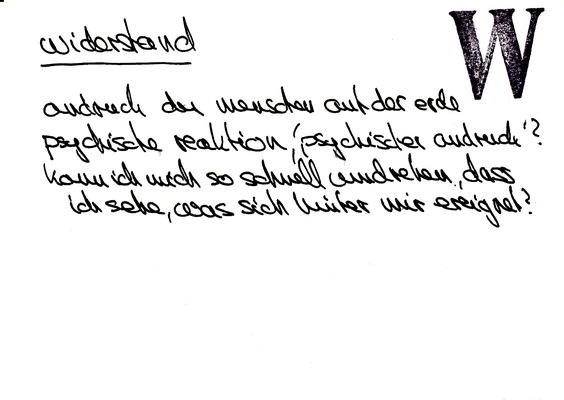 widerstand
W
andruck der menschen auf der erde
psychische reaktion, 'psychischer andruck'?
kann ich mich so schnell umdrehen, dass
ich sehe, was sich hinter mir ereignet?